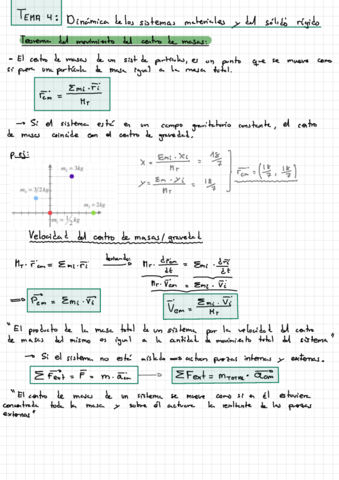 TEMA 4: Dinámica de los sistemas materiales y del sólido rígido
Teorema del movimiento del centro de masas:
- El centro de masas de un sist de partículas, es un punto que se mueve como
si fuera una partícula de masa igual a la masa total.
r⃗cm = Σmi · r⃗i / MT
→ Si el sistema está en un campo gravitatorio constante, el centro
de masas coincide con el centro de gravedad.
p.ej:
X = Σmi · Xi / MT
Y = Σm · Yi / MT
m₁ = 3kg
m₂ = 2kg
Velocidad del centro de masas/gravedad
MT · r⃗cm = Σmi · r⃗i → MT · dr⃗cm/dt = Σmi · dr⃗i/dt
MT · V⃗cm = Σmi · V⃗i
⇒ P⃗cm = Σmi · V⃗i V⃗cm = Σmi · V⃗i / MT
" El producto de la masa total de un sistema por la velocidad del centro
de masas del mismo es igual a la cantidad de movimiento total del sistema "
→ Si el sistema no está aislado → actúan fuerzas internas y externas.
Σ F⃗ext = F⃗ = m · a⃗cm → ΣF⃗ext = mTOTAL · a⃗cm
" El centro de masas de un sistema se mueve como si en él estuviera
concentrada toda la masa y sobre él actuara la resultante de las fuerzas
externas "